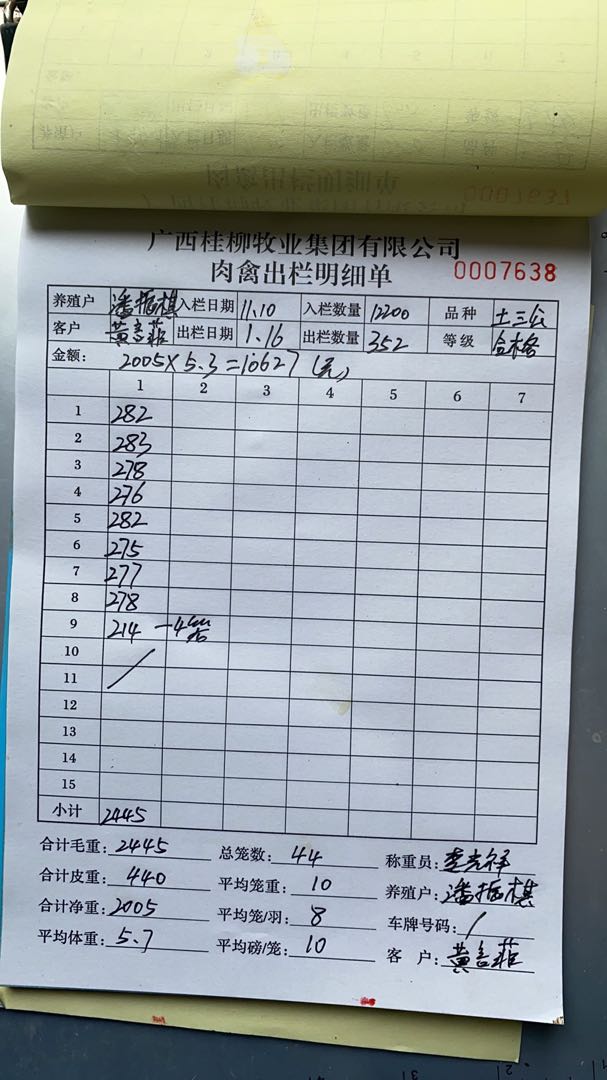 广西桂柳牧业集团有限公司
肉禽出栏明细单 0007638
养殖户 潘振棋 入栏日期 11.10 入栏数量 12200 品种 土三公
客户 出栏日期 1.16 出栏数量 352 等级 合格
金额: 2005×5.3=10627(元)
1 2 3 4 5 6 7
1 282
2 283
3 278
4 276
5 282
6 275
7 277
8 278
9 214 —4笼
10
11
12
13
14
15
小计 2445
合计毛重: 2445 总笼数: 44 称重员:
合计皮重: 440 平均笼重: 10 养殖户: 潘振棋
合计净重: 2005 平均笼/羽: 8 车牌号码: /
平均体重: 5.7 平均磅/笼: 10 客 户: